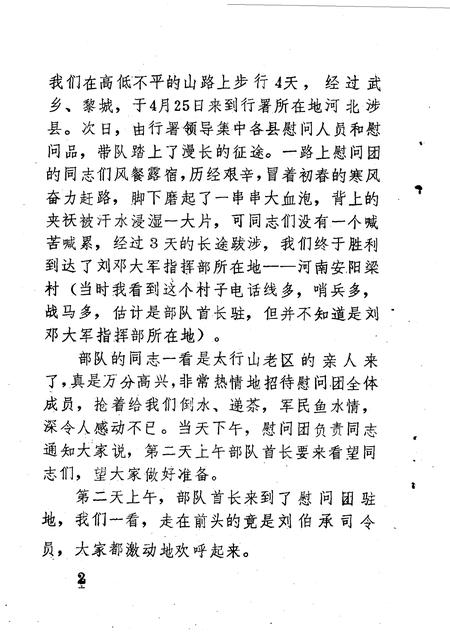 我们在高低不平的山路上步行4天，经过武
乡、黎城，于4月25日来到行署所在地河北涉
县。次日，由行署领导集中各县慰问人员和慰
问品，带队踏上了漫长的征途。一路上慰问团
的同志们风餐露宿，历经艰辛，冒着初春的寒风
奋力赶路，脚下磨起了一串串大血泡，背上的
夹袄被汗水浸湿一大片，可同志们没有一个喊
苦喊累，经过3天的长途跋涉，我们终于胜利
到达了刘邓大军指挥部所在地——河南安阳梁
村（当时我看到这个村子电话线多，哨兵多，
战马多，估计是部队首长驻，但并不知道是刘
邓大军指挥部所在地）。
部队的同志一看是太行山老区的亲人来
了，真是万分高兴，非常热情地招待慰问团全体
成员，抢着给我们倒水、递茶，军民鱼水情，
深令人感动不已。当天下午，慰问团负责同志
通知大家说，第二天上午部队首长要来看望同
志们，望大家做好准备。
第二天上午，部队首长来到了慰问团驻
地，我们一看，走在前头的竟是刘伯承司令
员，大家都激动地欢呼起来。
2